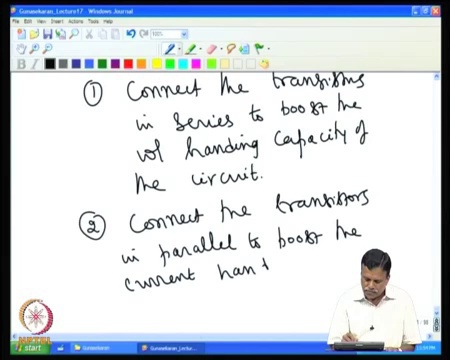 Gunasekaran_Lecture17 - Windows Journal
File Edit View Insert Actions Tools Help
① Connect the transistors
in series to boost the
vol handing capacity of
the circuit.
② Connect the transistors
in parallel to boost the
current han
NPTEL
start
Gunasekaran
Gunasekaran_Lectu...